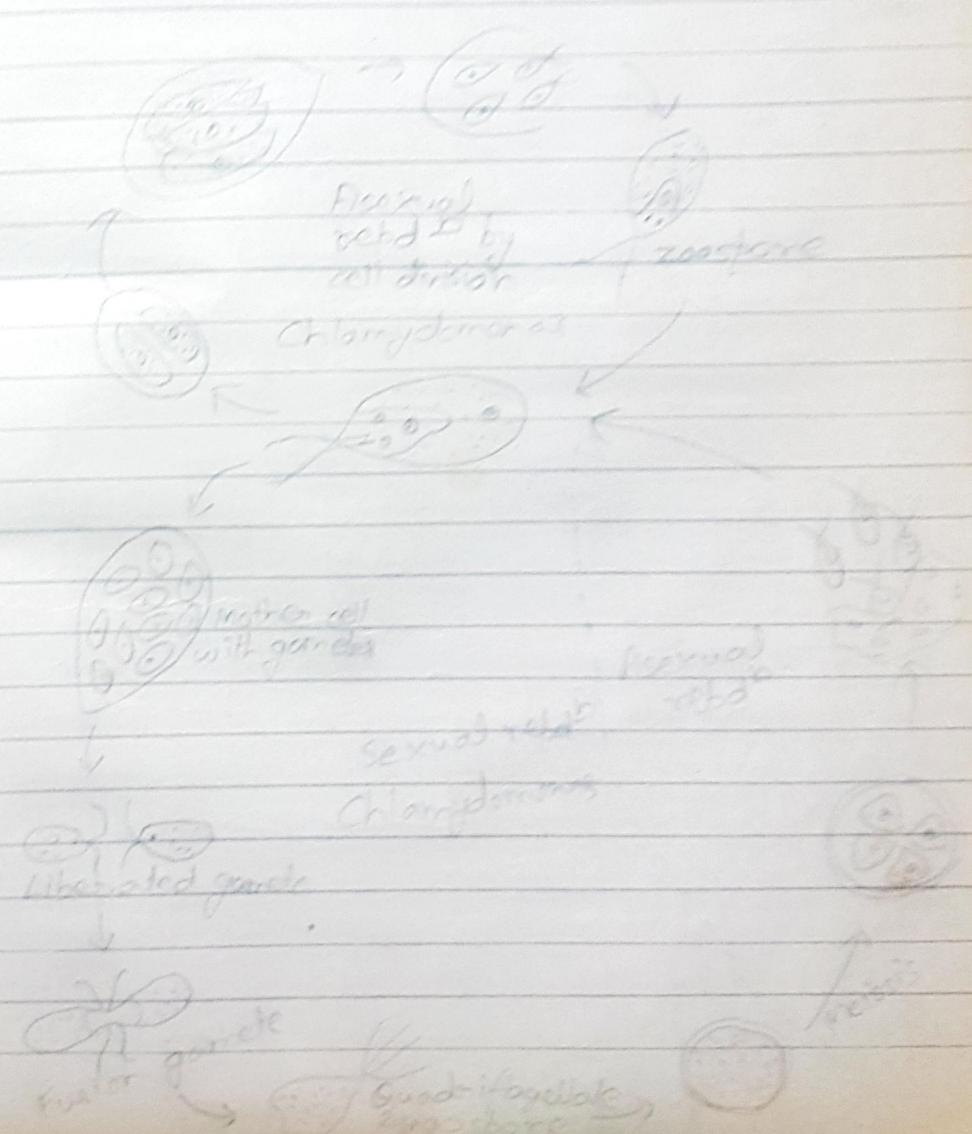 Asexual
repdⁿ by
cell division
zoospore
Chlamydomonas
mother cell
with gametes
Asexual
repdⁿ
Sexual repdⁿ
Chlamydomonas
Liberated gamete
meiosis
gamete
Fusion
Quadriflagellate
zygospore